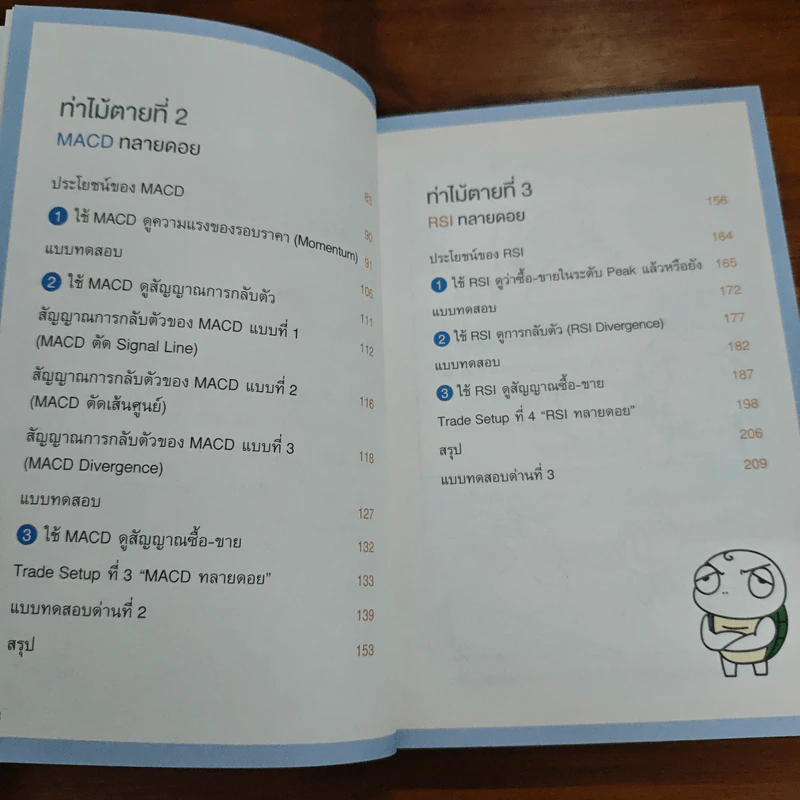 ท่าไม้ตายที่ 2
MACD ทลายดอย
ประโยชน์ของ MACD
1 ใช้ MACD ดูความแรงของรอบราคา (Momentum) 90
แบบทดสอบ 91
2 ใช้ MACD ดูสัญญาณการกลับตัว 106
สัญญาณการกลับตัวของ MACD แบบที่ 1 111
(MACD ตัด Signal Line) 112
สัญญาณการกลับตัวของ MACD แบบที่ 2
(MACD ตัดเส้นศูนย์) 116
สัญญาณการกลับตัวของ MACD แบบที่ 3
(MACD Divergence) 118
แบบทดสอบ 127
3 ใช้ MACD ดูสัญญาณซื้อ-ขาย 132
Trade Setup ที่ 3 “MACD ทลายดอย” 133
แบบทดสอบด่านที่ 2 139
สรุป 153
ท่าไม้ตายที่ 3
RSI ทลายดอย 156
ประโยชน์ของ RSI 164
1 ใช้ RSI ดูว่าซื้อ-ขายในระดับ Peak แล้วหรือยัง 165
แบบทดสอบ 172
2 ใช้ RSI ดูการกลับตัว (RSI Divergence) 177
แบบทดสอบ 182
3 ใช้ RSI ดูสัญญาณซื้อ-ขาย 187
Trade Setup ที่ 4 “RSI ทลายดอย” 198
สรุป 206
แบบทดสอบด่านที่ 3 209